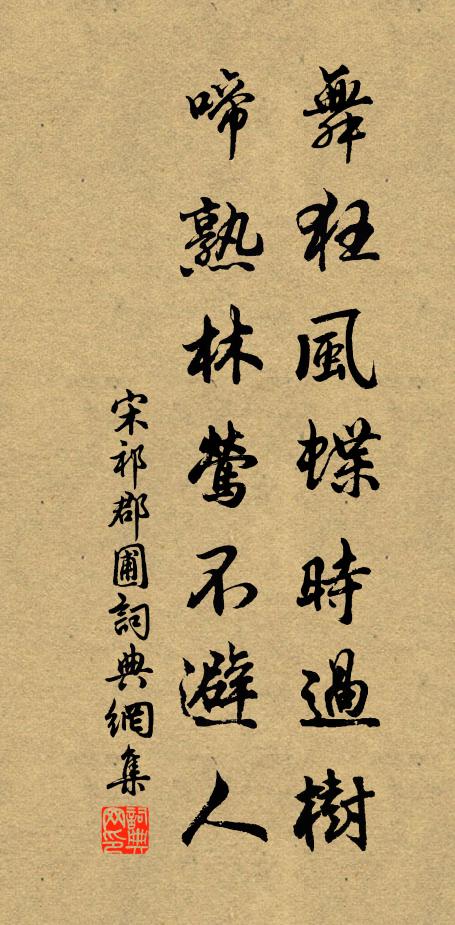 舞狂風蝶時過樹
啼熟林鶯不避人
宋祁郡圃詞典網集
詞典網印